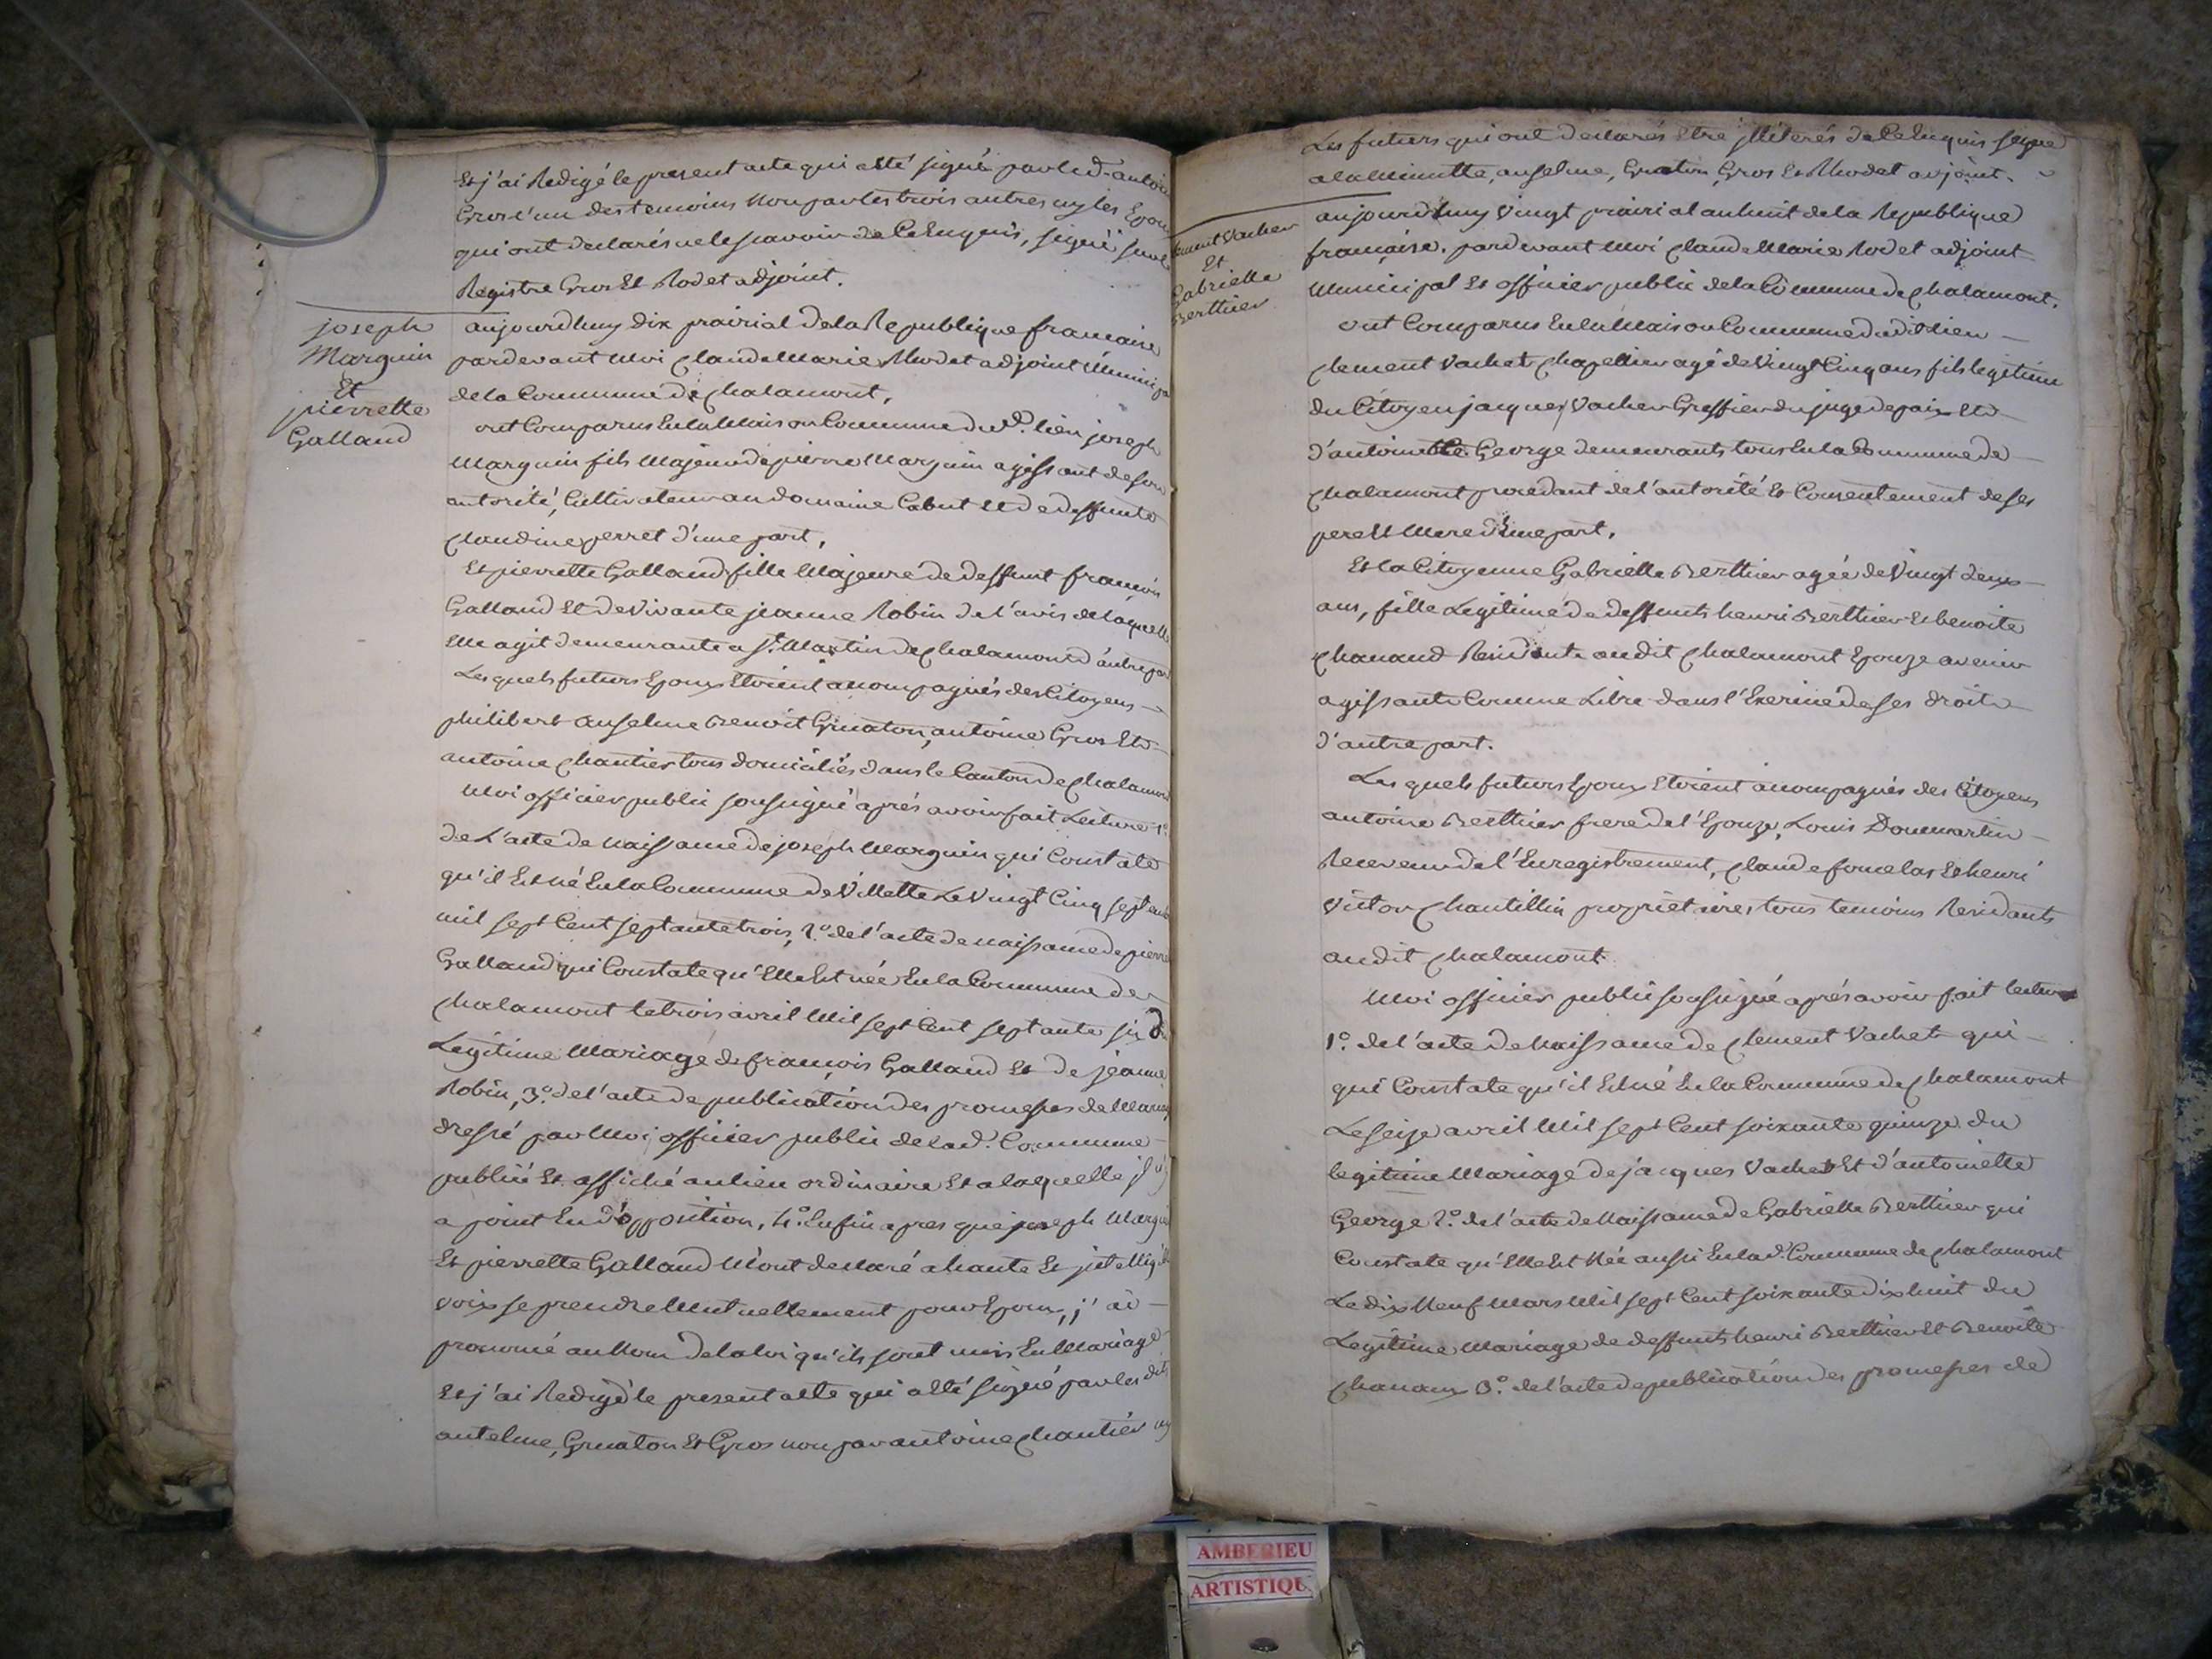 Et j'ai Redigé le present acte qui a été signé par led. antoine
Gros l'un des temoins non par les trois autres ny les Epoux
qui ont declarés ne le scavoir de Ce Enquis, signé sur le
Registre Gros Et Rodet adjoint.
joseph
Marguin
Et
pierrette
Galland
aujourdhuy dix prairial de la Republique francaise
pardevant Moi Claude Marie Rhodet adjoint Municipal
de la Commune de Chalamont,
ont Comparus En la Maison Commune du d. lieu joseph
Marguin fils Majeur de pierre Marguin agissant de son
autorité, Cultivateur au domaine Cabut Et de deffunte
Claudine perret d'une part,
Et pierrette Galland fille Majeure de deffunt francois
Galland Et de Vivante jeanne Robin de l'avis de laquelle
Elle agit demeurante a St. Martin de Chalamont d'autre part
Les quels futurs Epoux Etoient accompagnés des Citoyens
philibert anselme Benoit Gruaton, antoine Gros Et
antoine Chantier tous domiciliés dans le Canton de Chalamont
Moi officier public soussigné aprés avoir fait Lecture 1.º
de L'acte de Naissance de joseph Marguin qui Constate
qu'il Est né En la Commune de Villette Le Vingt Cinq septembre
mil sept Cent septante trois, 2.º de l'acte de Naissance de pierrette
Galland qui Constate qu'Elle Est née En la Commune de
Chalamont le trois avril Mil sept Cent septante six du
Legitime Mariage de francois Galland Et de jeanne
Robin, 3.º de l'acte de publication des promesses de Mariage
dressé par Moi officier public de lad. Commune
publié Et affiché au lieu ordinaire Et a laquelle il n'y
a point Eu d'opposition, 4.º Enfin apres que joseph Marguin
Et pierrette Galland M'ont declaré a haute Et intelligible
voix se prendre Mutuellement pour Epoux, j'ai
prononcé au Nom de la loi qu'ils sont unis En Mariage
Et j'ai Redigé le present acte qui a été signé par les dits
antelme, Gruaton Et Gros non par antoine Chantier ny
Les futurs qui ont declarés Etre illiterés de Ce Enquis signé
a la Minutte, anselme, Gruaton Gros Et Rhodet adjoint.
Clement Vacher
Et
Gabrielle
Berthier
aujourdhuy Vingt prairial an huit de la Republique
française. pardevant Moi Claude Marie Rodet adjoint
Municipal Et officier public de la Commune de Chalamont.
ont Comparus En la Maison Commune dudit lieu
Clement Vachet Chapellier agé de Vingt Cinq ans fils legitime
du Citoyen jacques Vacher Greffier du juge de paix Et
d'antoinette George demeurants tous En la Commune de
Chalamont procedant de l'autorité Et Consentement de ses
pere Et Mere d'une part,
Et la Citoyenne Gabrielle Berthier agée de Vingt deux
ans, fille Legitime de deffunts henri Berthier Et benoite
Chanaud Residante audit Chalamont Epouze avenir
agissante Comme Libre dans l'Exercice de ses droits
d'autre part.
Les quels futurs Epoux Etoient accompagnés des Citoyens
antoine Berthier frere de l'Epouze, Louis Dommartin
Receveur de l'Enregistrement, Claude foncelas Et henri
Victor Chantillin proprietaires, tous temoins Residants
audit Chalamont
Moi officier public soussigné aprés avoir fait lecture
1.º de l'acte de Naissance de Clement Vachet qui
qui Constate qu'il Est né En la Commune de Chalamont
Le seize avril Mil sept Cent soixante quinze du
legitime Mariage de jacques Vachet Et d'antoinette
George 2.º de l'acte de Naissance de Gabrielle Berthier qui
Constate qu'Elle Est Née aussi En lad. Commune de Chalamont
Le dix Neuf Mars Mil sept Cent soixante dix huit du
Legitime Mariage de deffunts henri Berthier Et Benoite
Chanaux 3.º de l'acte de publication des promesses de
AMBERIEU
ARTISTIQU